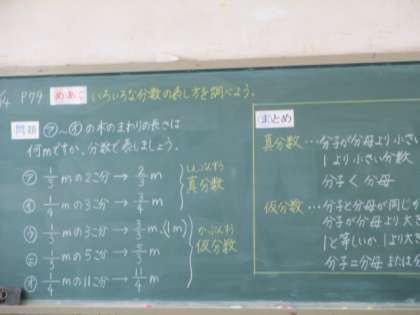 P79 めあて いろいろな分数の表し方を調べよう。
問題 ㋐〜㋔の木のまわりの長さは
何mですか。分数で表しましょう。
㋐ 1/3 mの2こ分→ 2/3 m
㋑ 1/4 mの3こ分→ 3/4 m
しんぶんすう
真分数
㋒ 1/3 mの3こ分→ 3/3 m(1m)
mの5こ分→ m
㋔ 1/4 mの11こ分→ 11/4 m
かぶんすう
仮分数
まとめ
真分数…分子が分母より小さい
1より小さい分数
分子<分母
仮分数…分子と分母が同じか
分子が分母より大
1と等しいか1より大
分子=分母または分